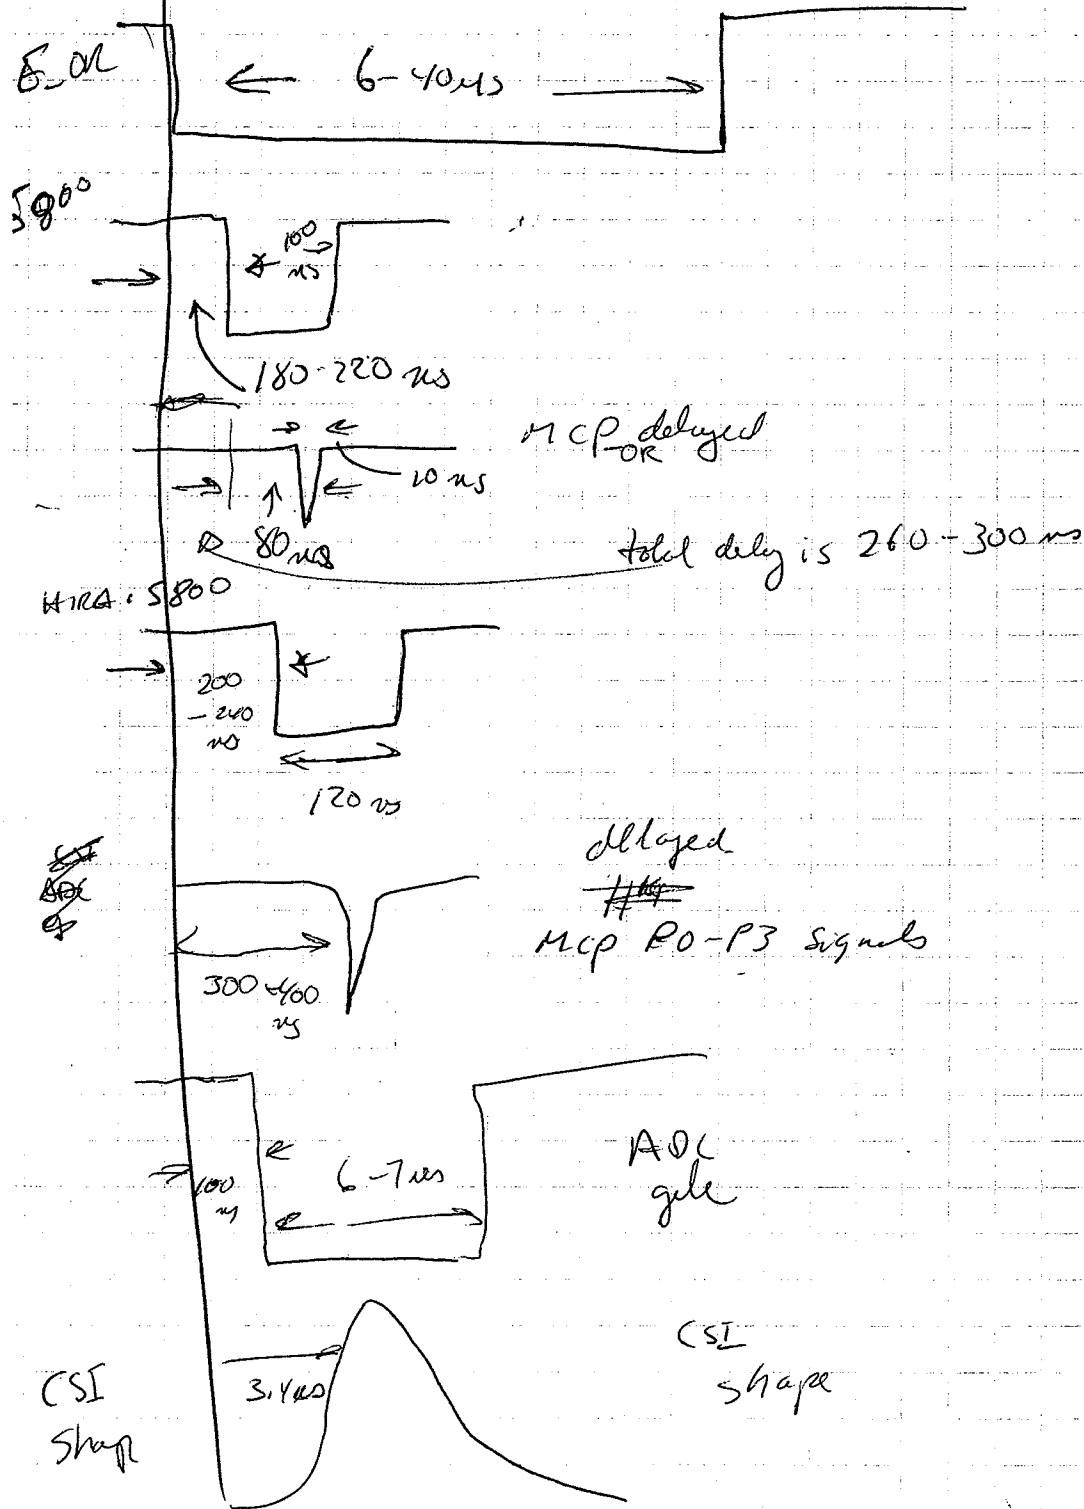 E_OR
6-40μs
S800
100
ns
180-220 ns
MCP_OR delayed
10 ns
80ns
total delay is 260-300 ns
HIRA · S800
200
- 240
ns
120 ns
delayed
MCP P0-P3 signals
300-400
ns
ADC
gate
6-7μs
100
ns
CSI
shape
3.4μs
CSI
Shap